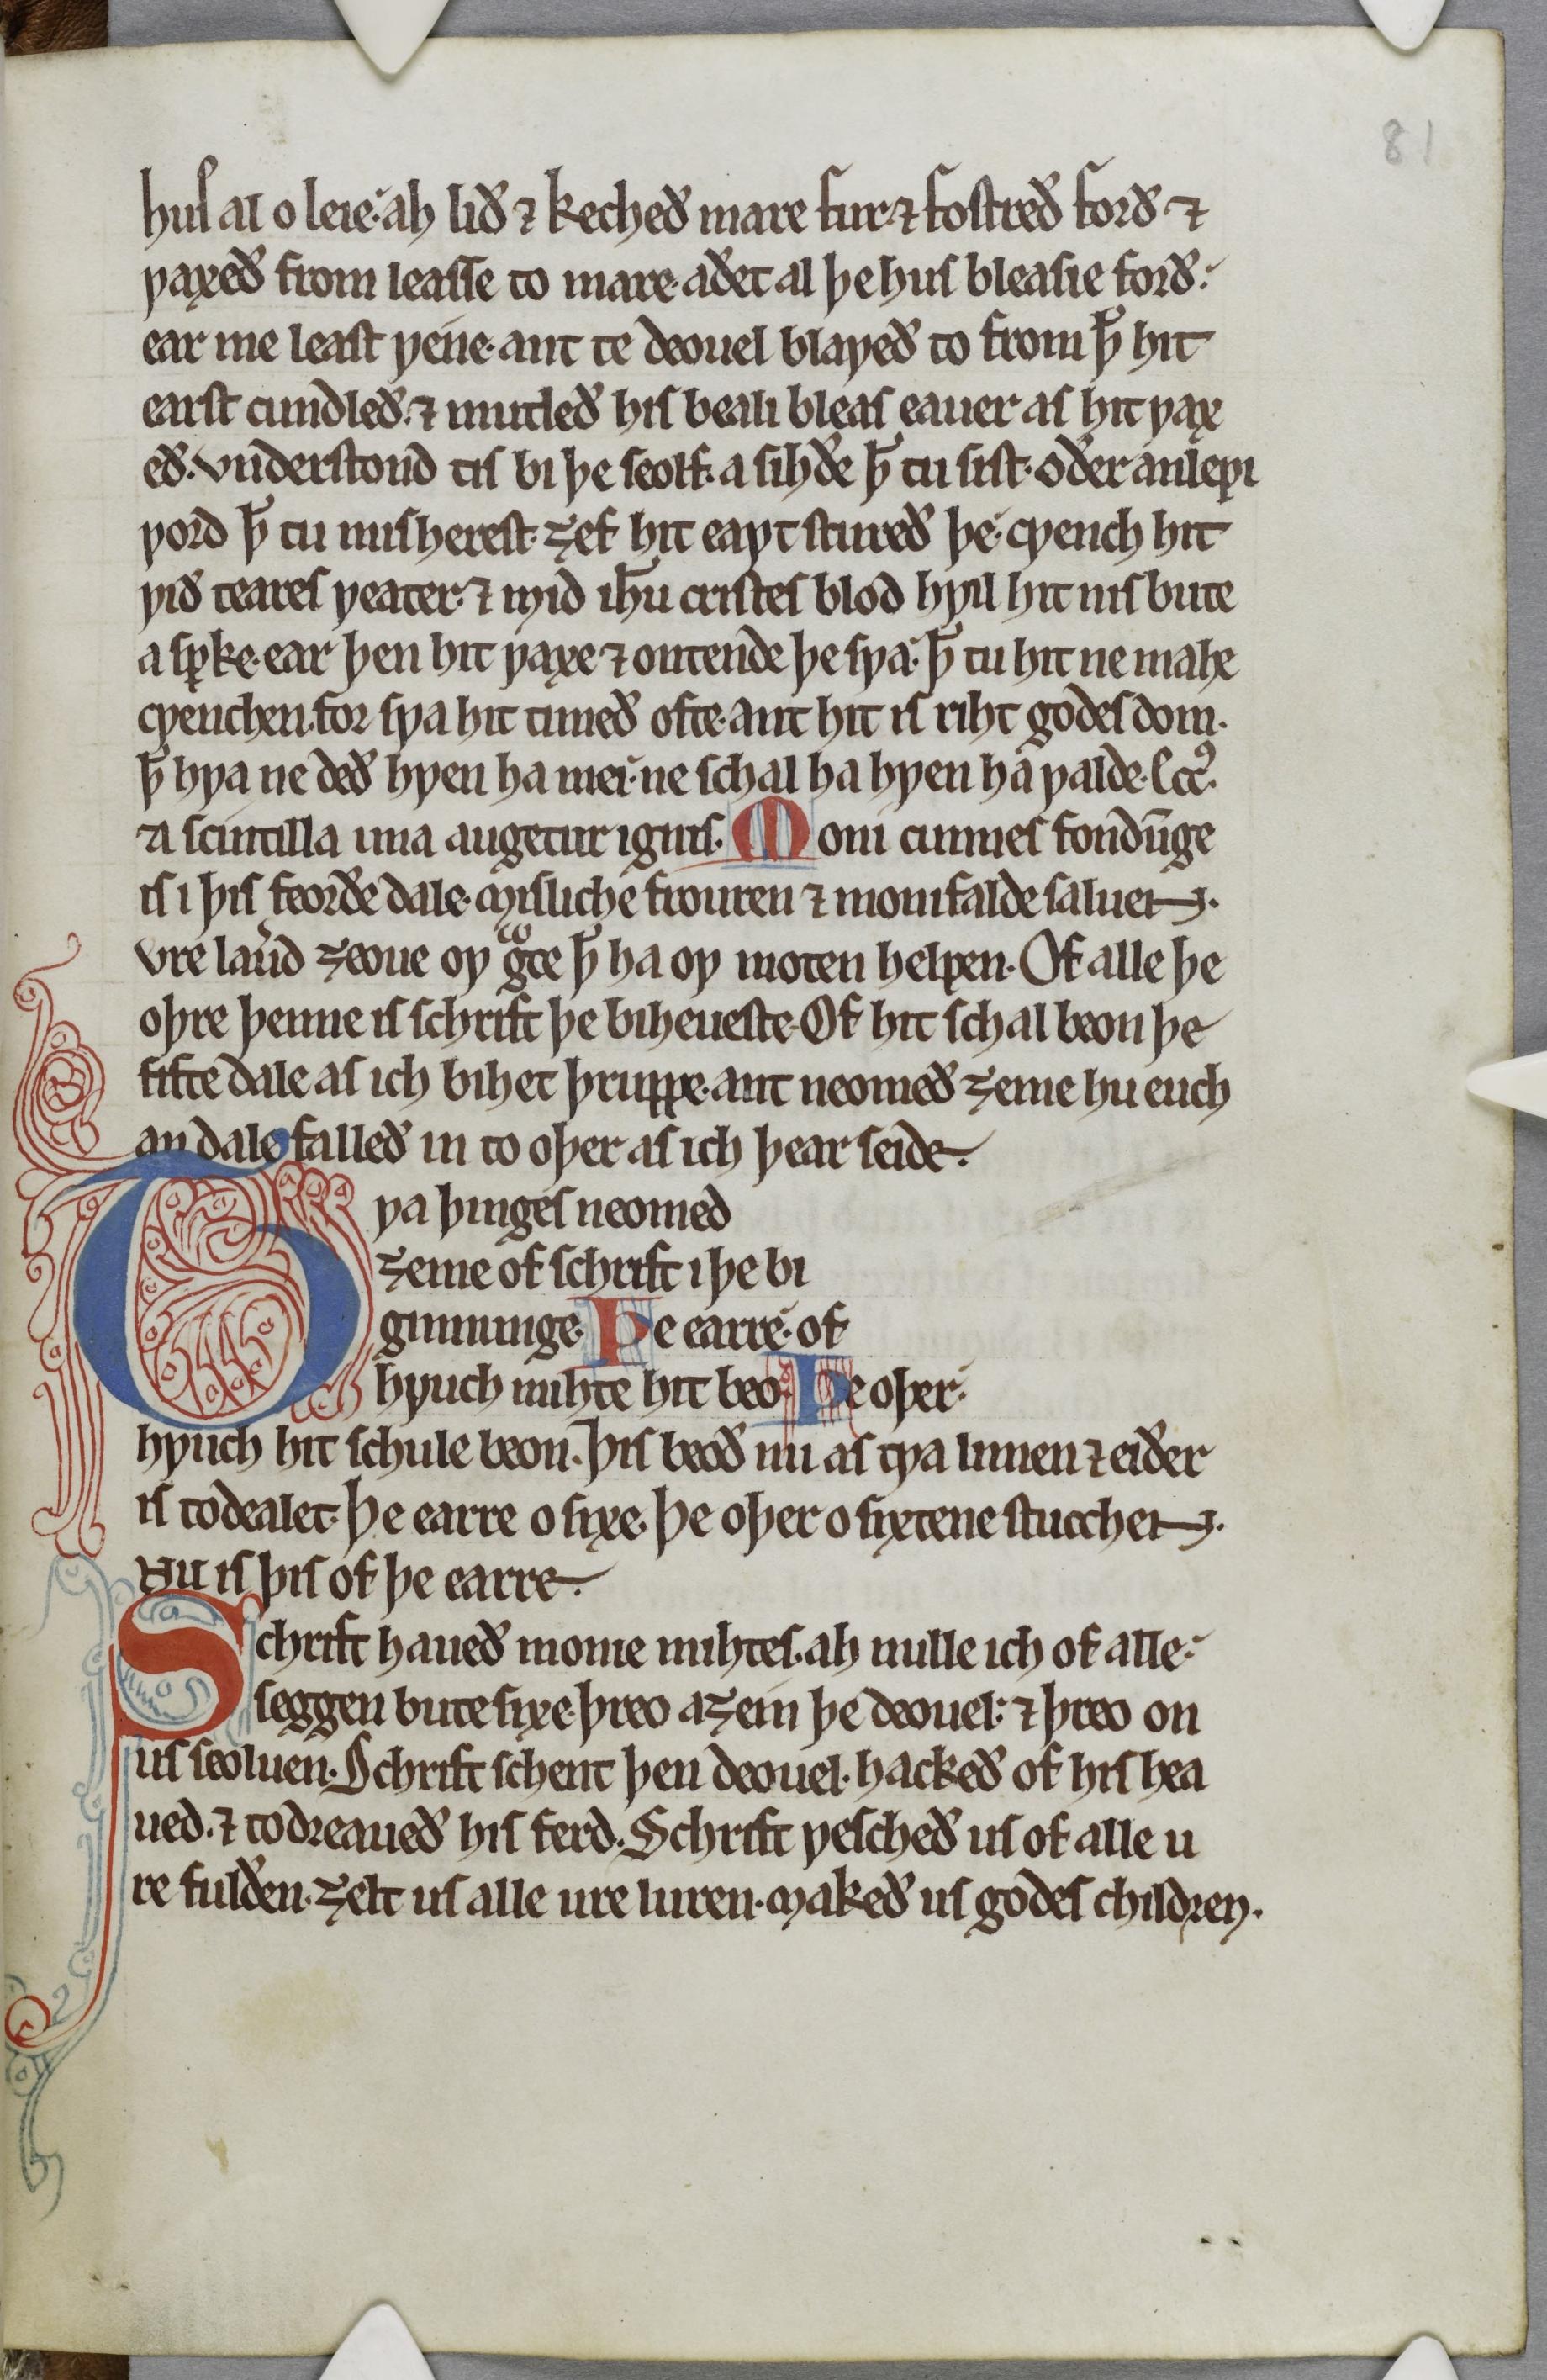 81
hus al o leie· ah lið ⁊ kecheð mare fur ⁊ fostreð forð· ⁊
ƿaxeð from leasse to mare· aðet al þe hus bleasie forð·
ear me least ƿene· ant te deouel blaƿeð to from ꝥ hit
earst cundleð· ⁊ mutleð his beali bleas eauer as hit ƿax
eð· Vnderstond tis bi þe seolf· a sihðe ꝥ tu sist· oðer anlepi
ƿord ꝥ tu misherest· ȝef hit eaƿt stureð þe· cƿench hit
ƿið teares ƿeater· ⁊ mid ih̅u cristes blod hƿil hit nis bute
a sꝑke· ear þen hit ƿaxe ⁊ ontende þe sƿa· ꝥ tu hit ne mahe
cƿenchen· for sƿa hit timeð ofte· ant hit is riht godes dom·
ꝥ hƿa ne deð hƿen ha mei· ne schal ha hƿen ha ƿalde· Ecc̅ꝰ·
A scintilla una augetur ignis· Moni cunnes fondu̅ge
is i þis feorðe dale· misliche frouren ⁊ monifalde saluen·
Vre lauerd ȝeoue oƿ gᵃce ꝥ ha oƿ moten helpen· Of alle þe
oþre þenne is schrift þe biheueste· Of hit schal beon þe
fifte dale as ich bihet þruppe· ant neomeð ȝeme hu euch
an dale falleð in to oþer as ich þear seide·
Tƿa þinges neomeð
ȝeme of schrift i þe bi
ginnunge· Þe earre· of
hƿuch mihte hit beo· Þe oþer·
hƿuch hit schule beon· Þis beoð nu as tƿa limen ⁊ eiðer
is todealet· þe earre o sixe· þe oþer o sixtene stucchen·
Nu is þis of þe earre·
Schrift haueð monie mihtes· ah nulle ich of alle·
seggen bute sixe· þreo aȝein þe deouel· ⁊ þreo on
us seoluen· Schrift schent þen deouel· hackeð of his hea
ued· ⁊ todreaueð his ferd· Schrift ƿescheð us of alle u
re fulðen· ȝelt us alle ure luren· makeð us godes children·